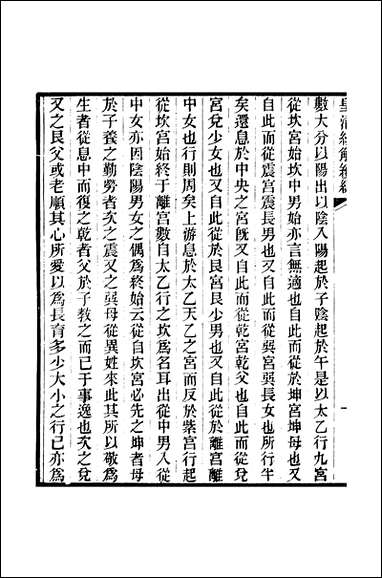 皇清經解續編
數大分以陽出以陰入陽起於子陰起於午是以太乙行九宮
從坎宮始坎中男始亦言無適也自此而從於坤宮坤母也又
自此而從震宮震長男也又自此而從巽宮巽長女也所行半
矣還息於中央之宮旣又自此而從乾宮乾父也自此而從兌
宮兌少女也又自此從於艮宮艮少男也又自此從於離宮離
中女也行則周矣上游息於太乙天乙之宮而反於紫宮行起
從坎宮始終於離宮數自太乙行之坎爲名耳出從中男入從
中女亦因陰陽男女之偶爲終始云從自坎宮必先之坤者母
於子養之勤勞者次之震又之巽母從異姓來此其所以敬爲
生者從息中而復之乾者父於子教之而已于事逸也次之兌
又之艮父或老順其心所愛以爲長育多少大小之行已亦爲